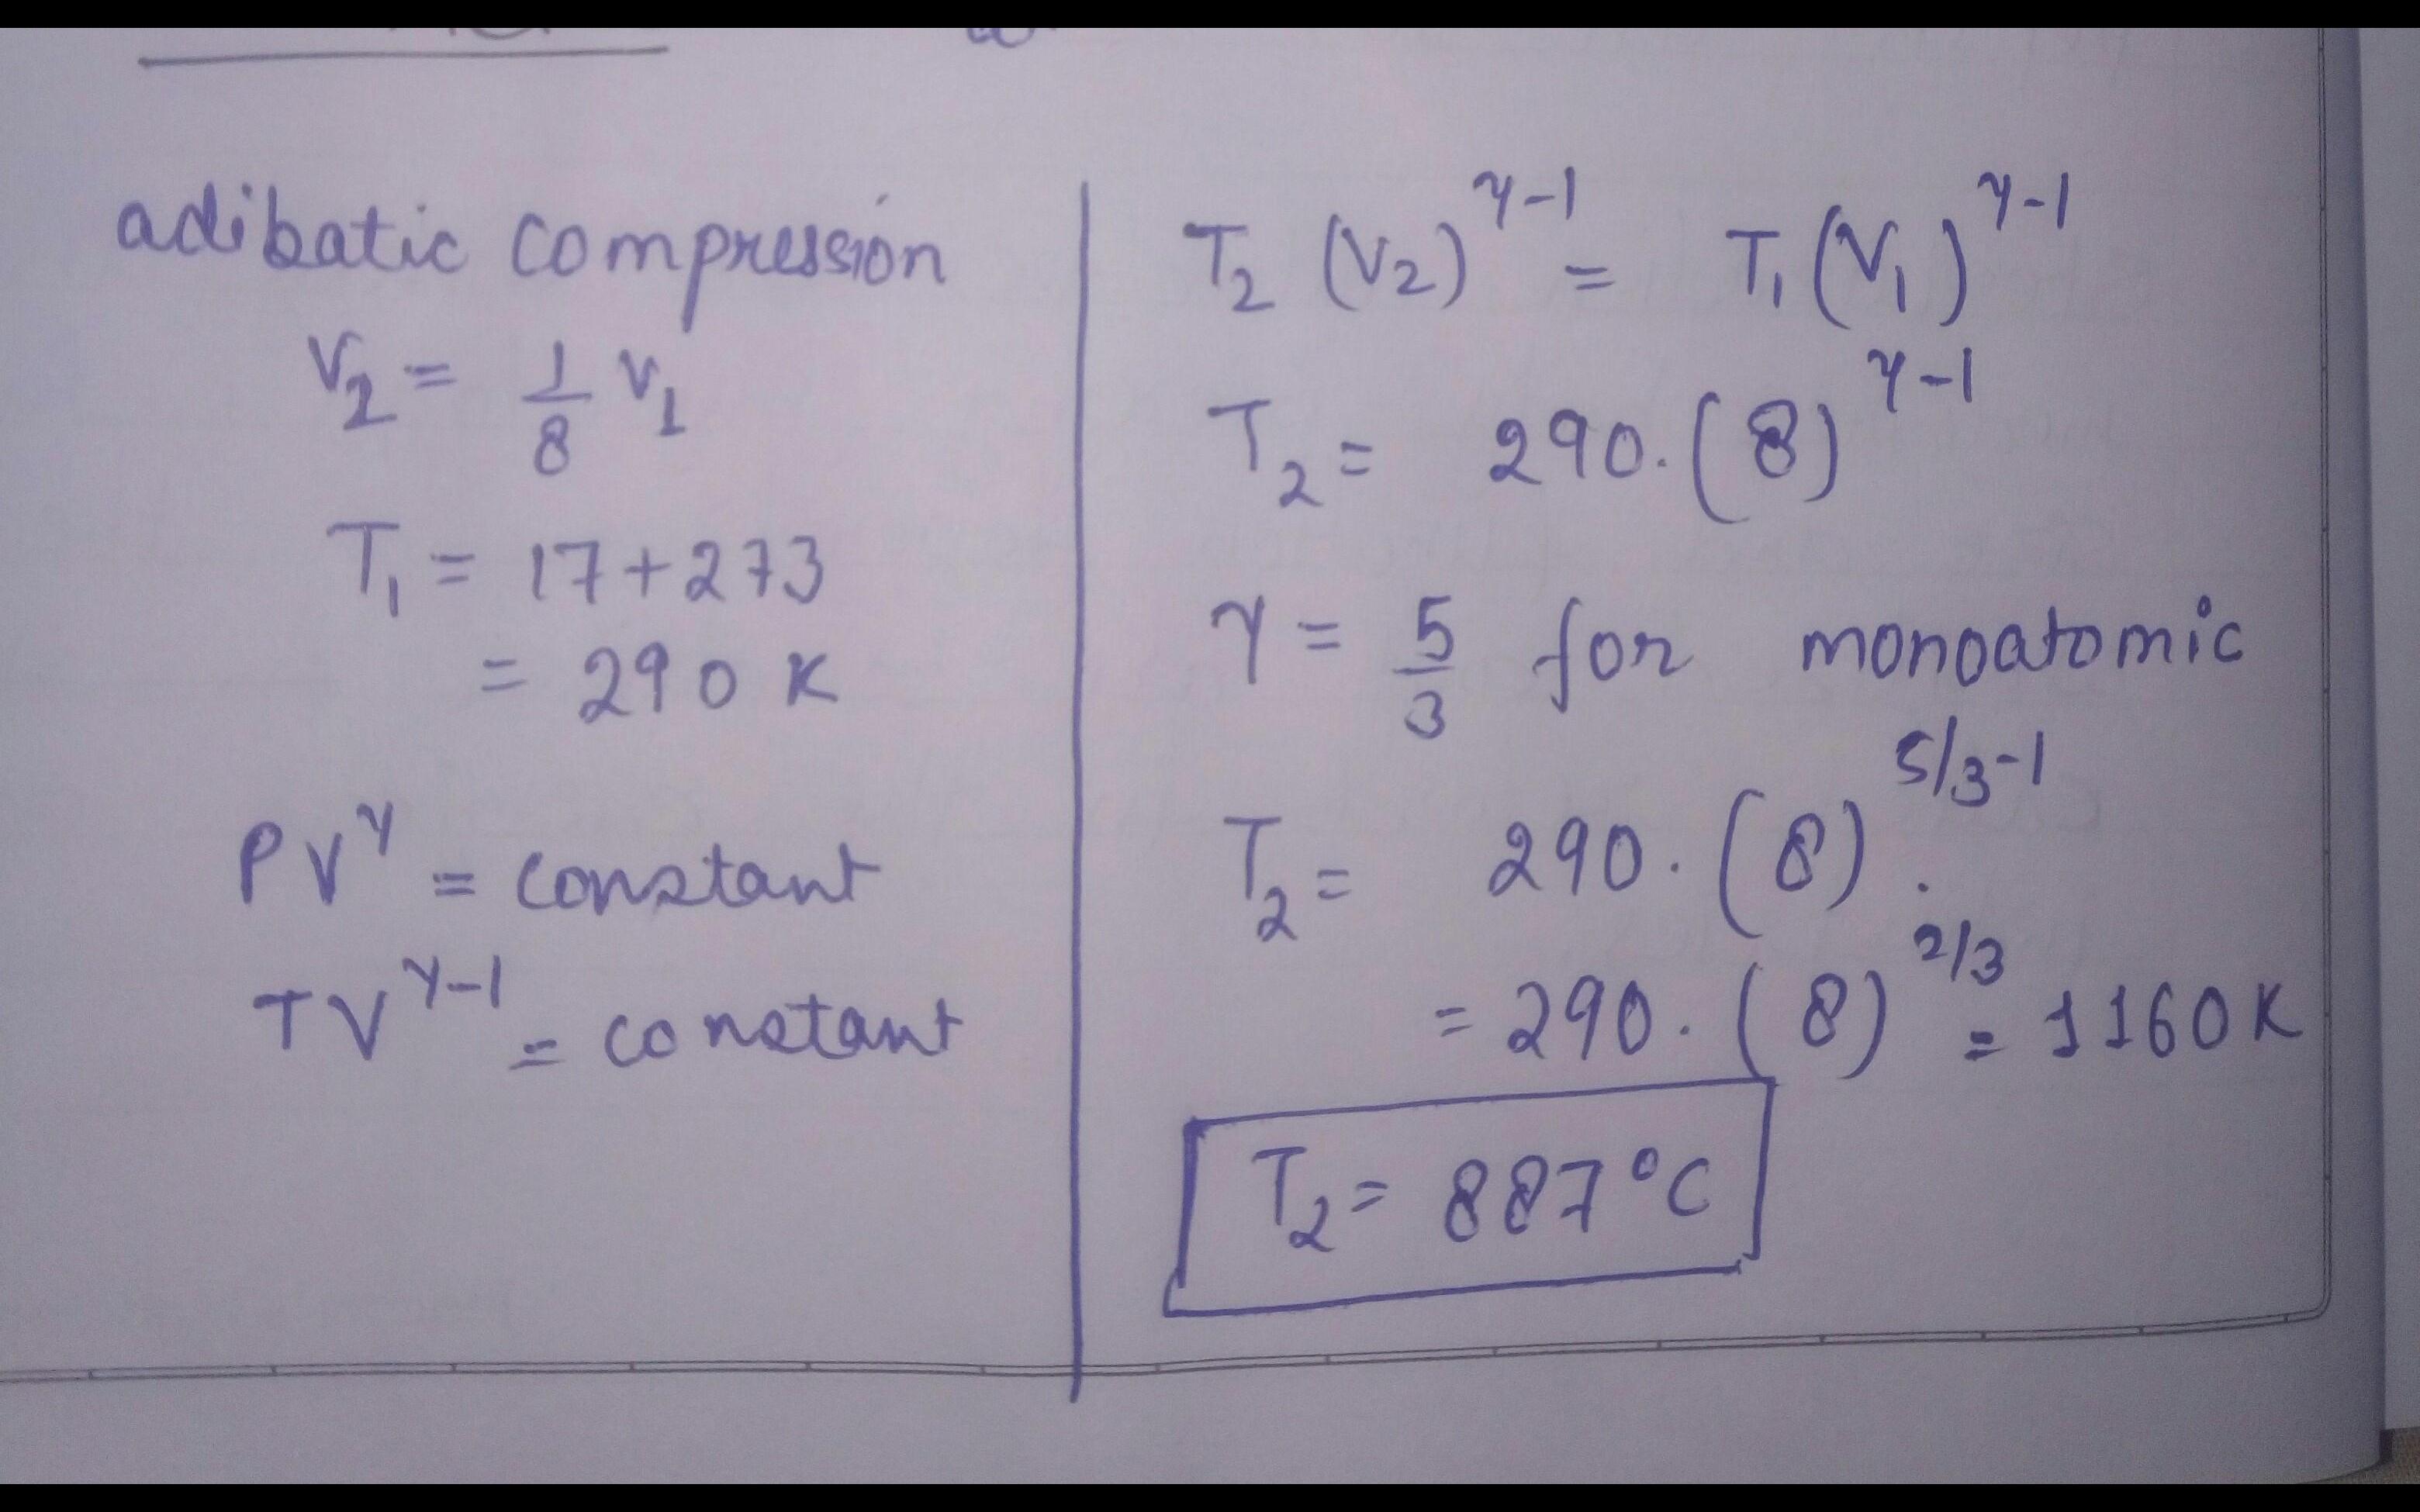 adibatic compression
V₂ = 1/8 V₁
T₁ = 17+273
= 290 K
PV^γ = constant
TV^γ-1 = constant
T₂ (V₂)^γ-1 = T₁ (V₁)^γ-1
T₂ = 290. (8)^γ-1
γ = 5/3 for monoatomic
T₂ = 290. (8)^5/3-1 .
= 290. (8)^2/3 = 1160 K
T₂ = 887°C